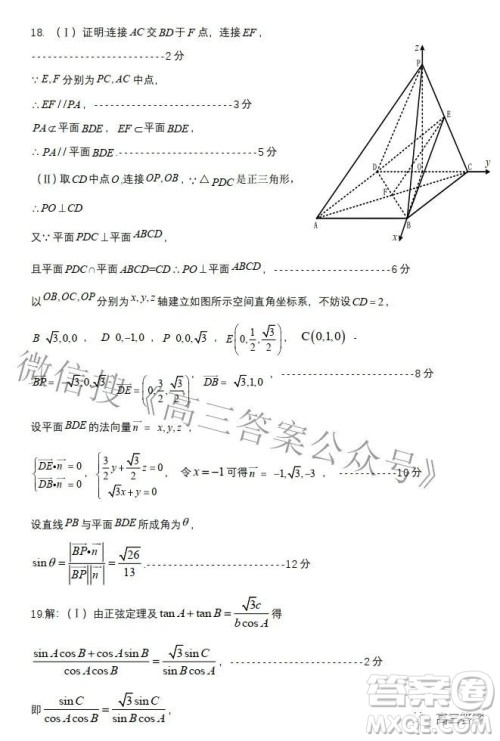 18.（Ⅰ）证明:连接 AC 交 BD 于 F 点，连接 EF，
--------------------2 分
∵ E,F 分别为 PC, AC 中点,
∴ EF // PA，--------------------3 分
PA ⊄ 平面 BDE, EF ⊂ 平面 BDE,
∴ PA // 平面 BDE.--------------------5 分
（Ⅱ)取 CD 中点 O,连接 OP,OB，∵ △PDC 是正三角形，
∴ PO ⊥ CD
又∵ 平面 PDC ⊥ 平面 ABCD，
且平面 PDC ∩ 平面 ABCD=CD ∴ PO ⊥ 平面 ABCD，--------------------6 分
以 OB,OC,OP 分别为 x, y, z 轴建立如图所示空间直角坐标系，不妨设 CD = 2，
B √3,0,0 , D 0,-1,0 , P 0,0,√3 , E(0, 1/2, √3/2) , C(0,1,0)
BP = -√3,0,√3 , DE = (0, 3/2, √3/2) , DB = √3,1,0 , --------------------8 分
设平面 BDE 的法向量 n = x, y, z ,
{DE•n = 0, DB•n = 0 , {3/2 y + √3/2 z = 0, √3x + y = 0 , 令 x = -1 可得 n = -1, √3, -3 , --------10 分
设直线 PB 与平面 BDE 所成角为 θ，
sin θ = |BP•n| / |BP||n| = √26/13 .--------------------12 分
19.解：（Ⅰ）由正弦定理及 tan A + tan B = √3c / b cos A 得
sin A cos B + cos A sin B / cos A cos B = √3 sin C / sin B cos A ，--------------------2 分
即 sin C / cos A cos B = √3 sin C / sin B cos A ,
z
P
E
D
O
C
y
F
A
B
x
微信搜《高三答案公众号》
答案圈